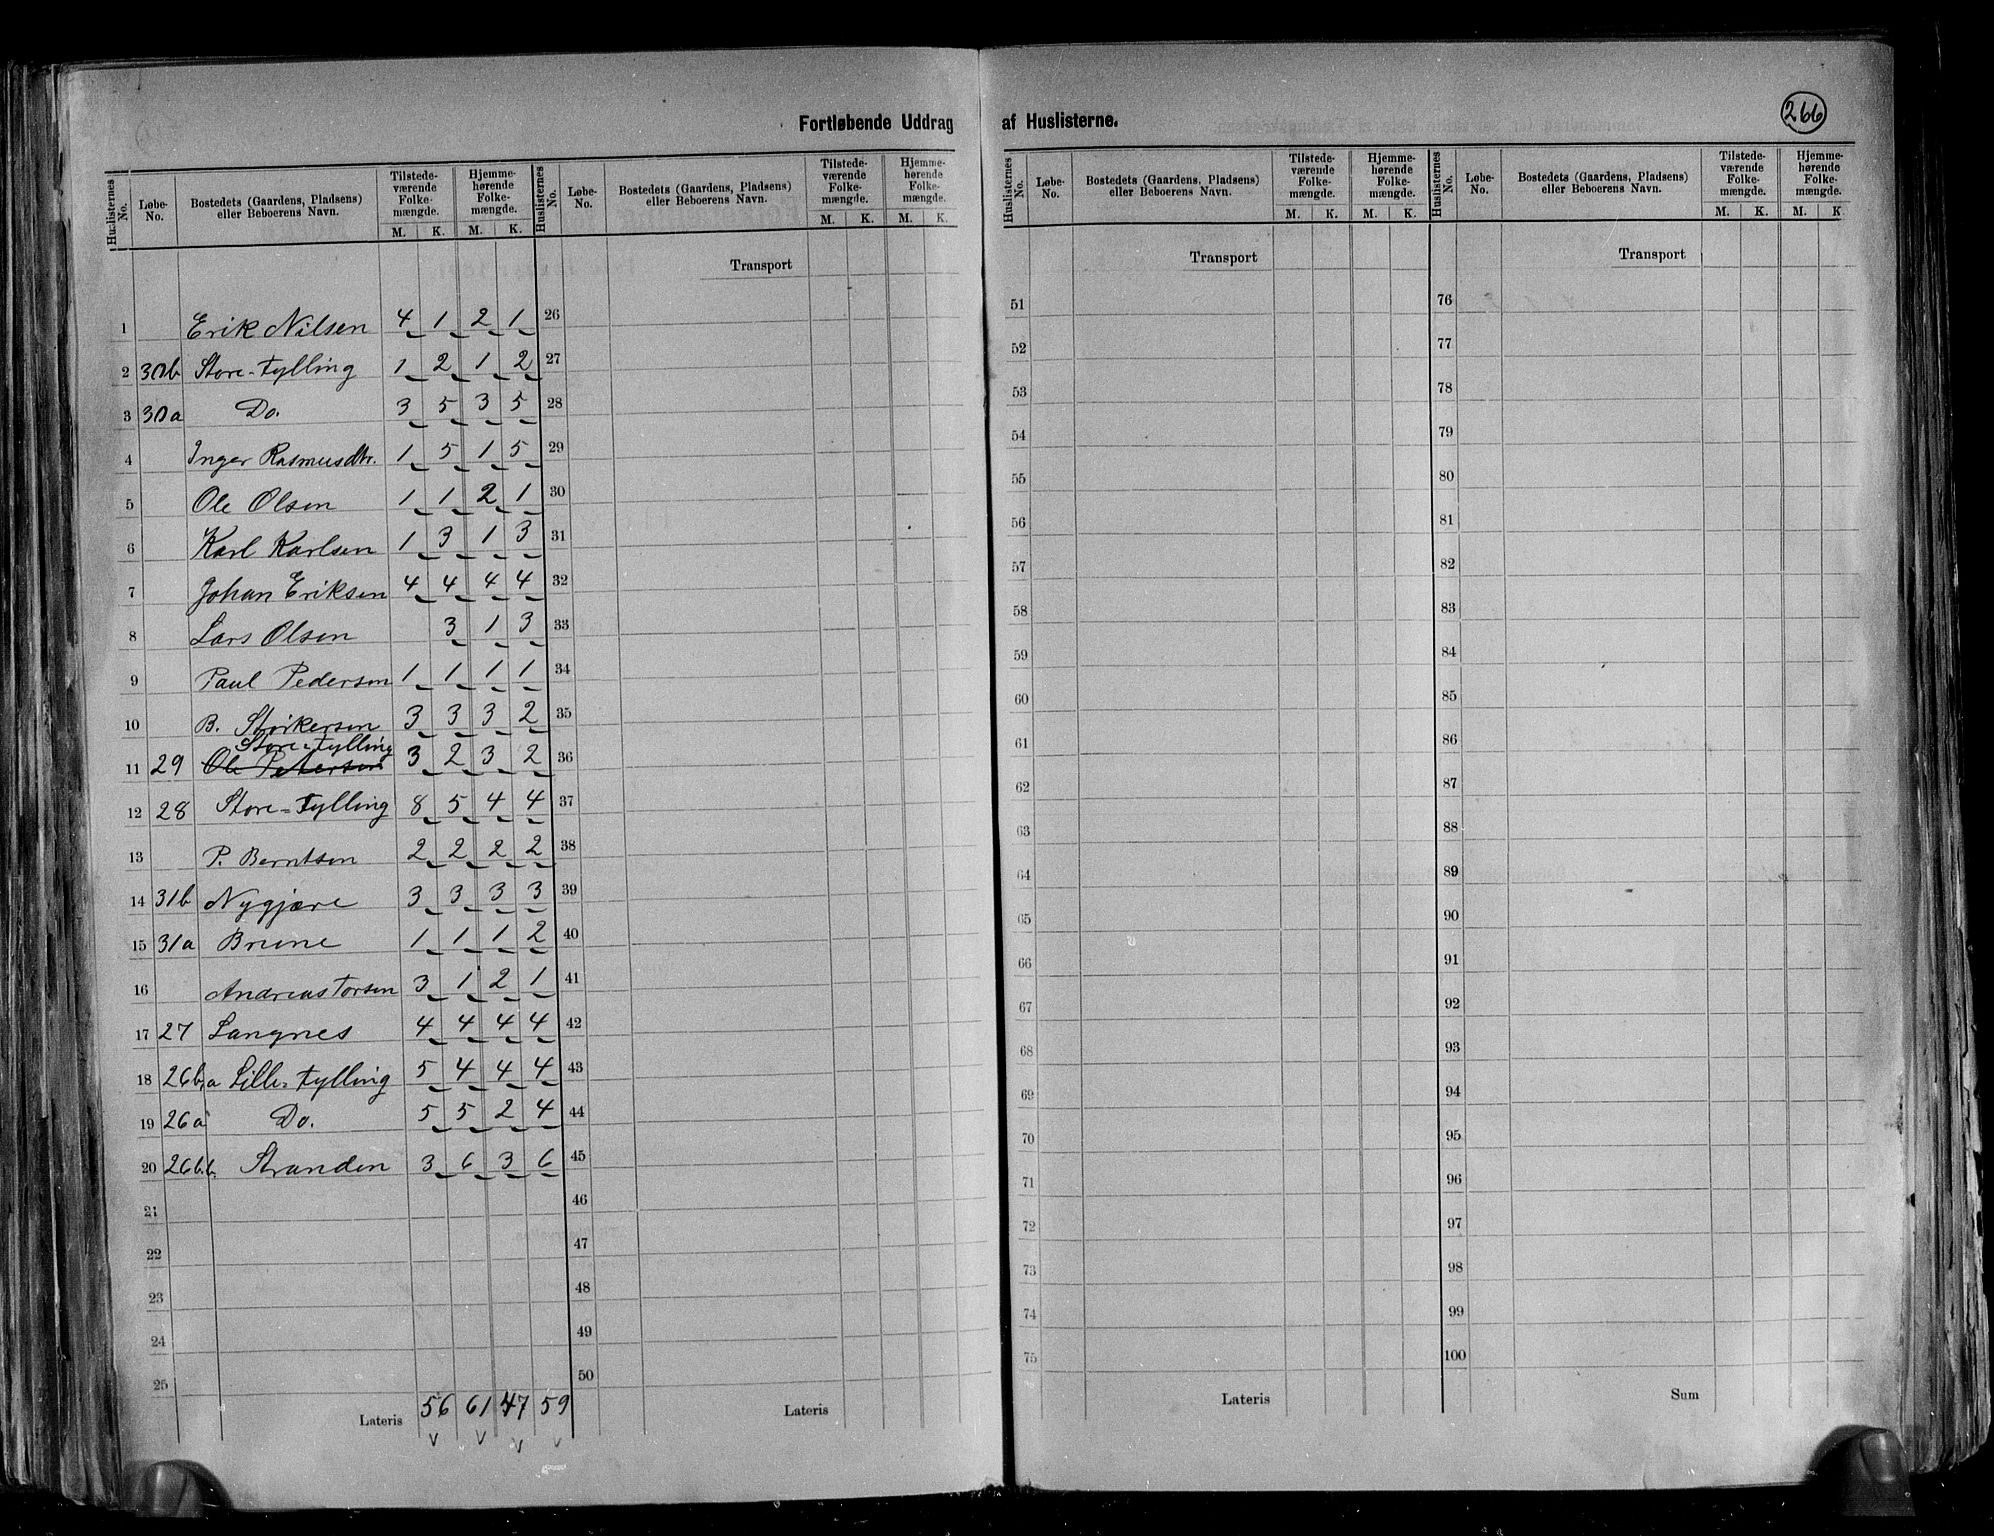 266
Fortløbende Uddrag af Huslisterne.
Huslisternes No. | Løbe-No. | Bostedets (Gaardens, Pladsens) eller Beboerens Navn. | Tilstedeværende Folkemængde. M. K. | Hjemmehørende Folkemængde. M. K.
Huslisternes No. | Løbe-No. | Bostedets (Gaardens, Pladsens) eller Beboerens Navn. | Tilstedeværende Folkemængde. M. K. | Hjemmehørende Folkemængde. M. K.
Huslisternes No. | Løbe-No. | Bostedets (Gaardens, Pladsens) eller Beboerens Navn. | Tilstedeværende Folkemængde. M. K. | Hjemmehørende Folkemængde. M. K.
Huslisternes No. | Løbe-No. | Bostedets (Gaardens, Pladsens) eller Beboerens Navn. | Tilstedeværende Folkemængde. M. K. | Hjemmehørende Folkemængde. M. K.
1 Erik Nilsen 4 1 2 1
2 30b Store-Fylling 1 2 1 2
3 30a Do. 3 5 3 5
4 Inger Rasmusdtr. 1 5 1 5
5 Ole Olsen 1 1 2 1
6 Karl Karlsen 1 3 1 3
7 Johan Eriksen 4 4 4 4
8 Lars Olsen 3 1 3
9 Paul Pedersen 1 1 1 1
10 B. Størkersen 3 3 3 2
Store-Fylling
11 29 Ole Petersen 3 2 3 2
12 28 Store-Fylling 8 5 4 4
13 P. Berntsen 2 2 2 2
14 31b Nygjære 3 3 3 3
15 31a Brune 1 1 1 2
16 Andreas Torsen 3 1 2 1
17 27 Langnes 4 4 4 4
18 26b,a Lille-Fylling 5 4 4 4
19 26a Do. 5 5 2 4
20 26b,b. Stranden 3 6 3 6
21
22
23
24
25
Lateris 56 61 47 59
Transport
26
27
28
29
30
31
32
33
34
35
36
37
38
39
40
41
42
43
44
45
46
47
48
49
50
Lateris
Transport
51
52
53
54
55
56
57
58
59
60
61
62
63
64
65
66
67
68
69
70
71
72
73
74
75
Lateris
Transport
76
77
78
79
80
81
82
83
84
85
86
87
88
89
90
91
92
93
94
95
96
97
98
99
100
Sum